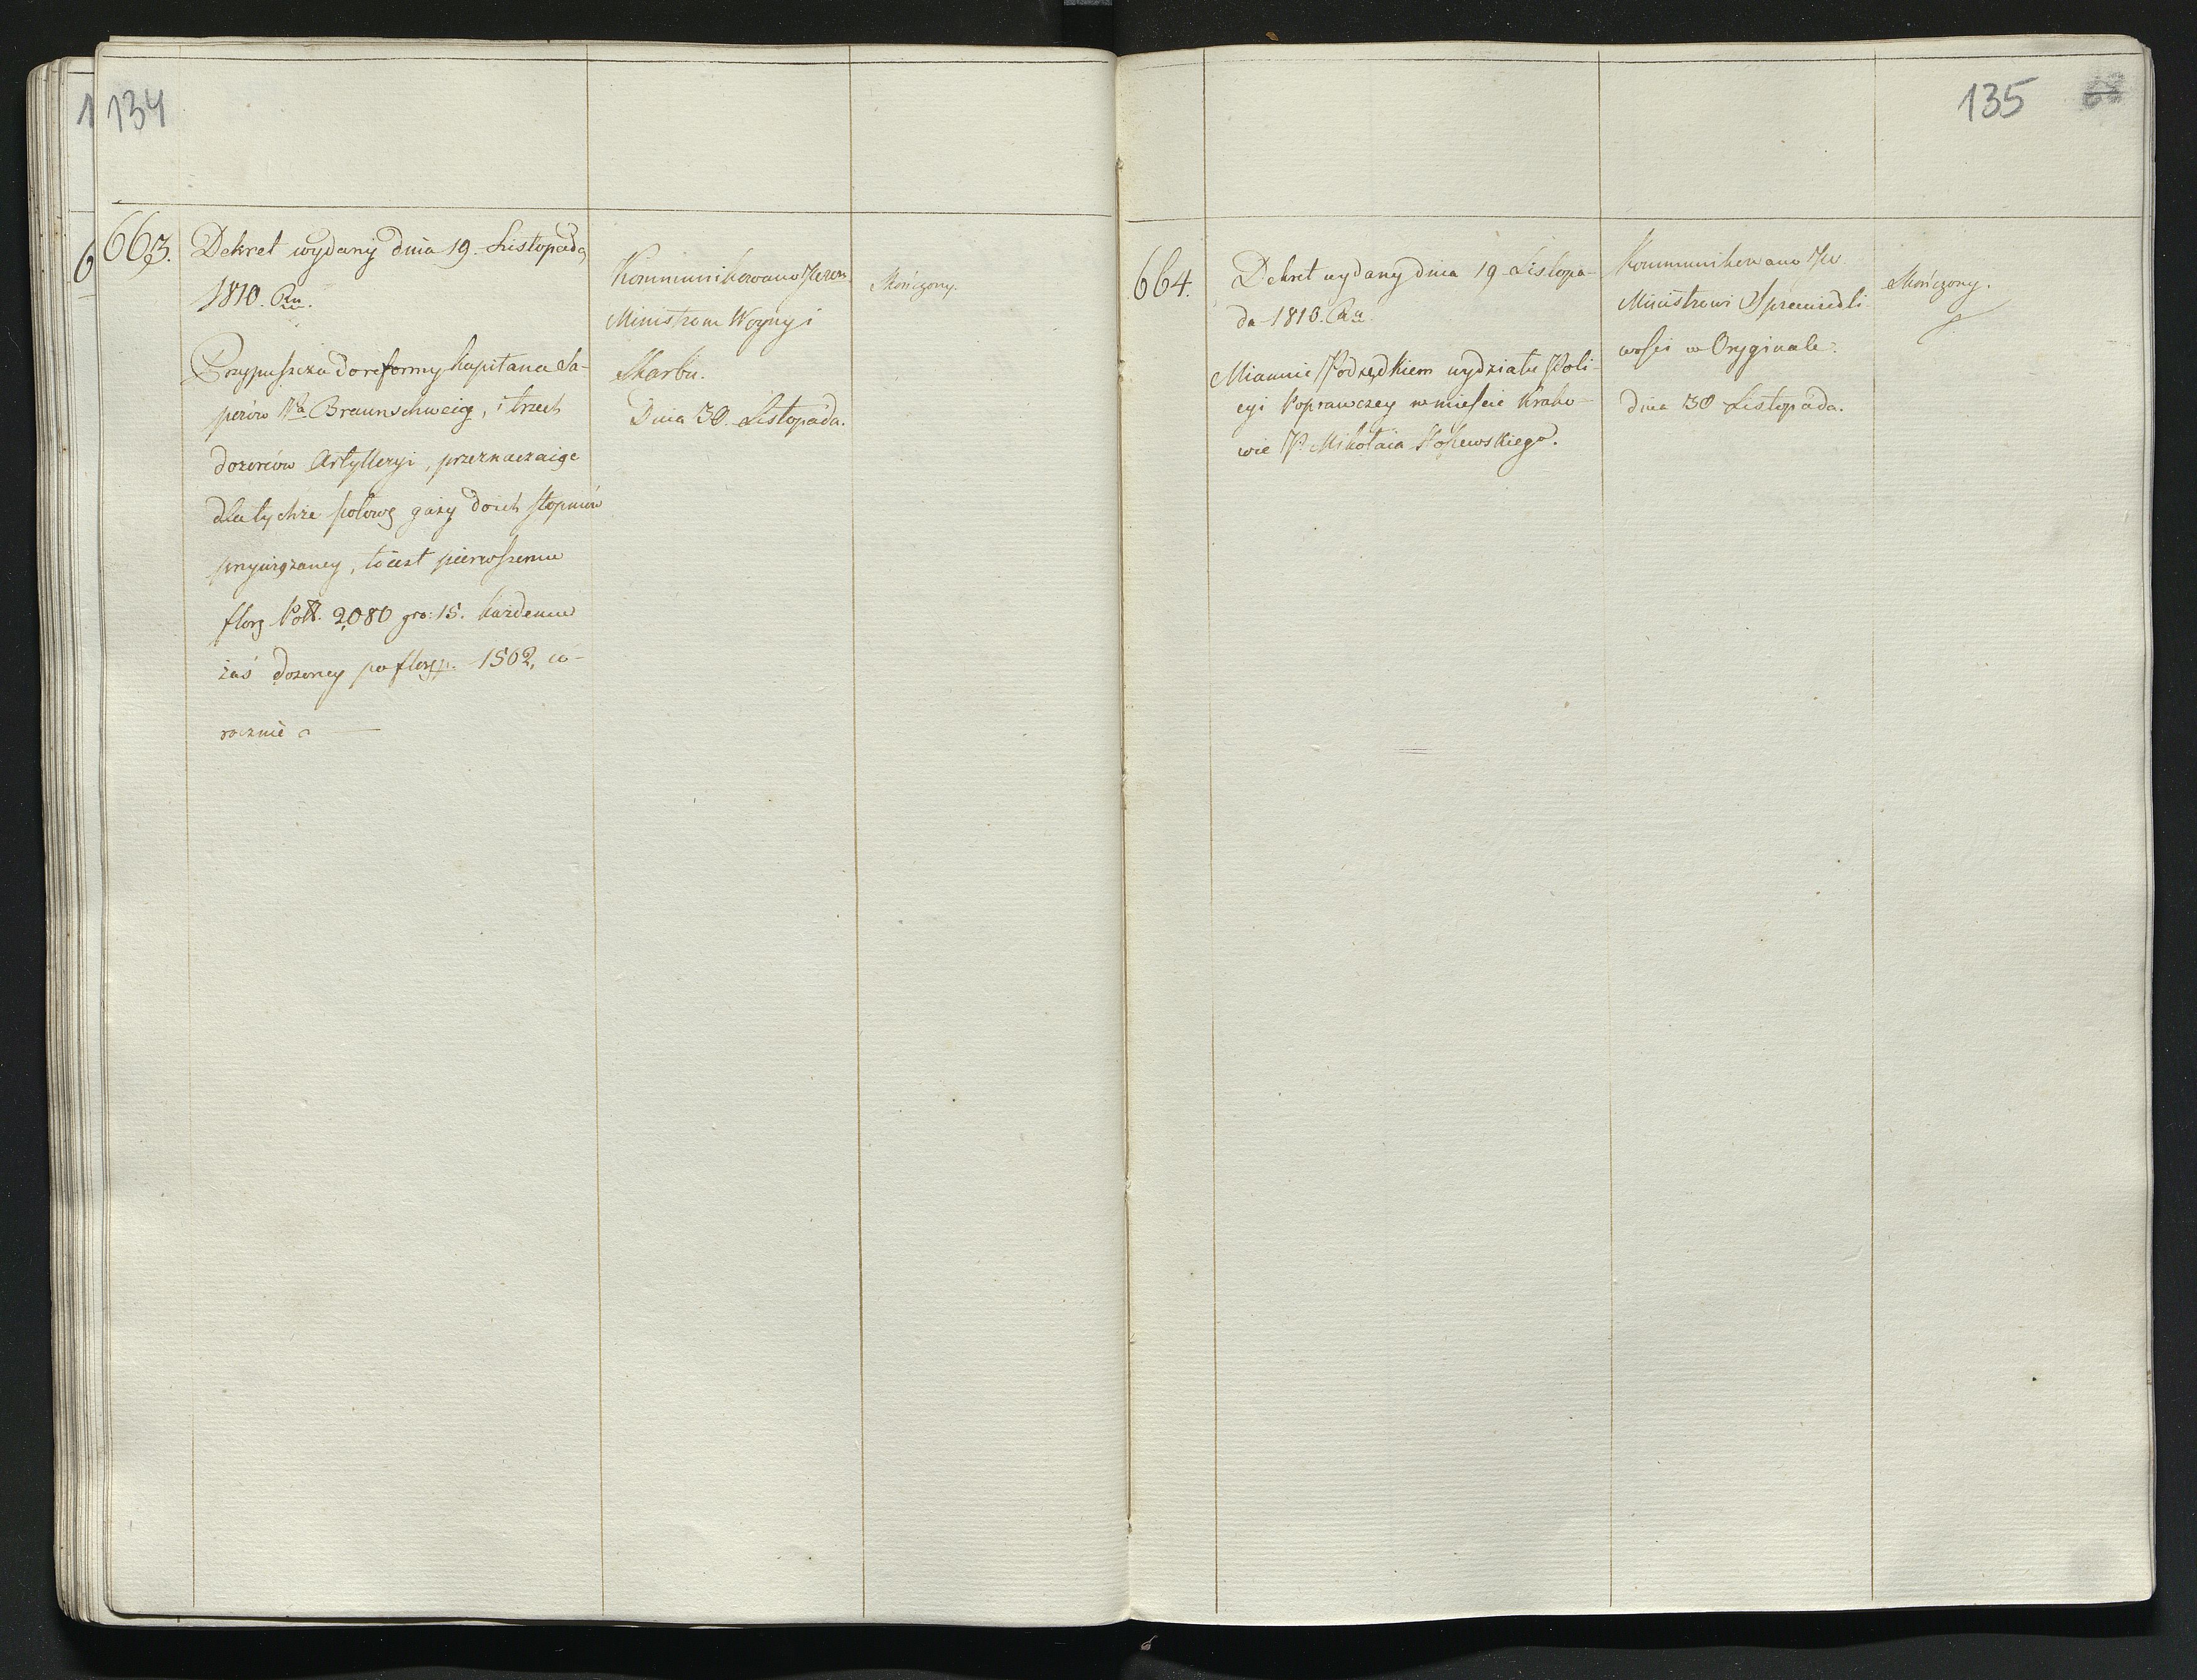 134
663.
Dekret wydany dnia 19 Listopada
1810. Ru.
Przypuszcza do reformy Kapitana Sa-
perów Braunschweig, i trzech
dozorców Artylleryi, przeznaczaiąc
dla tychże połowę gaży do ich stopniów
przywiązaney, to iest pierwszemu
florz Poll. 2080 gro: 15. każdemu
zaś dozorcy po florz p. 1502, co-
rocznie
Kommunikowano
Ministrom Woyny i
Skarbu.
Dnia 30. Listopada.
Skończony.
135 68
664.
Dekret wydany dnia 19 Listopa-
da 1810. Ru.
Mianuie Podsędkiem wydziału Poli-
cyi Poprawczey w mieście Krako-
wie P. Mikołaia
Kommunikowano JW.
Ministrowi Sprawiedli-
wości w Oryginale.
dnia 30 Listopada.
Skończony.